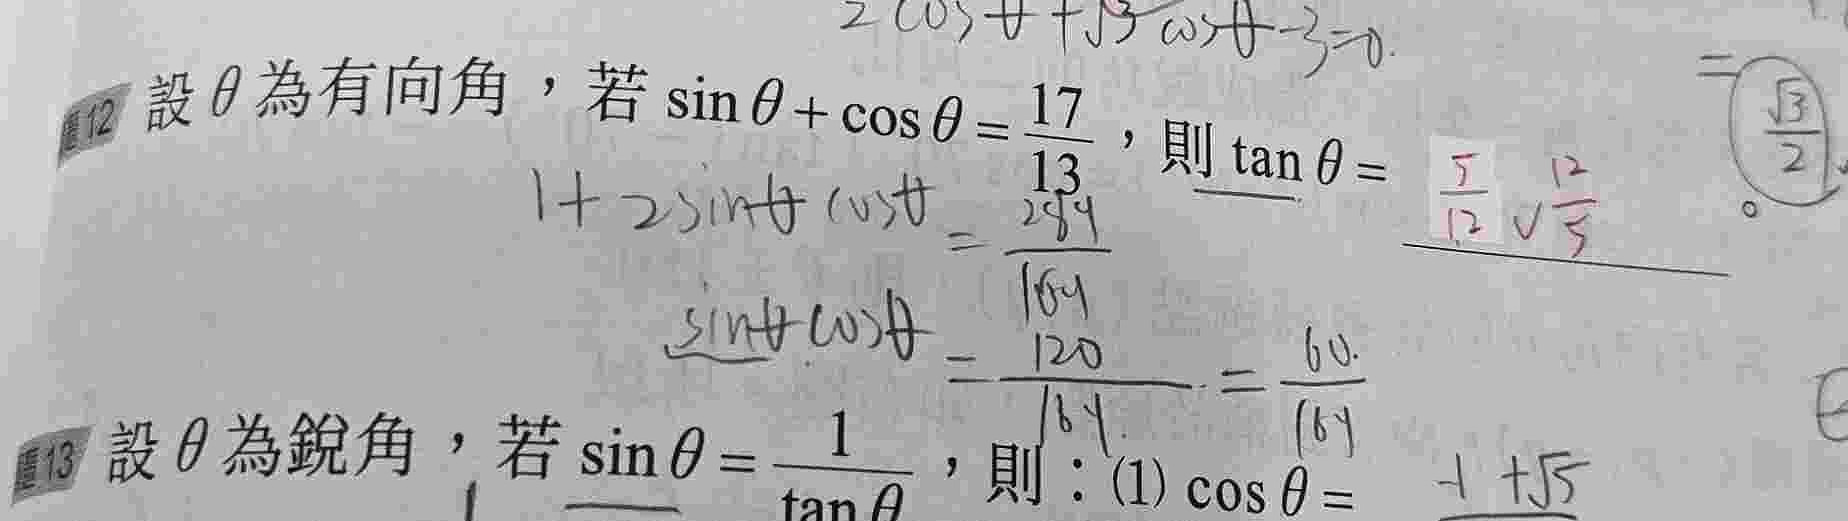 2cosθ+√3cosθ-3=0.
12 設θ為有向角，若 sinθ+cosθ=17/13，則 tanθ= 5/12 ∨ 12/5 。
= √3/2
1+2sinθcosθ = 289/169
sinθcosθ = 120/169. = 60./169
13 設θ為銳角，若 sinθ=1/tanθ，則：(1) cosθ= -1+√5